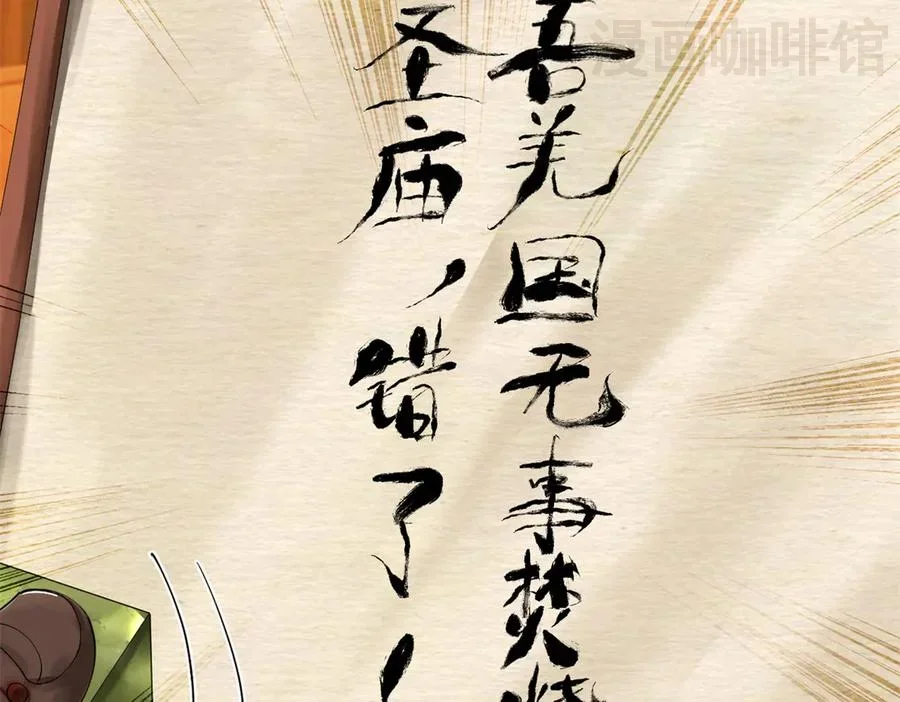 漫画咖啡馆
吾羌国无事焚烧
圣庙，错了！